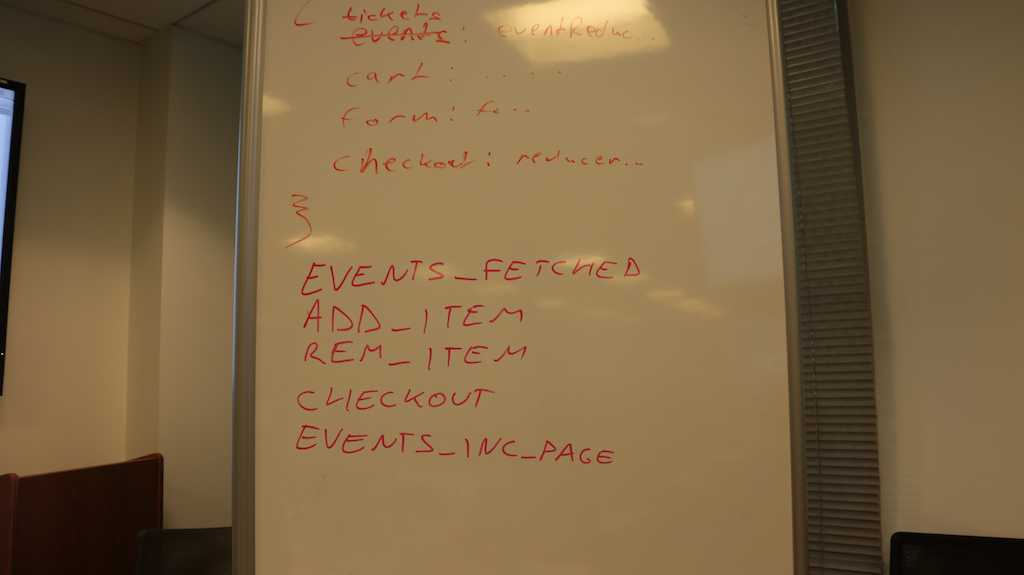 { tickets
events : eventReduc...
cart : .....
form : fo...
checkout : reducer...
}
EVENTS_FETCHED
ADD_ITEM
REM_ITEM
CHECKOUT
EVENTS_INC_PAGE